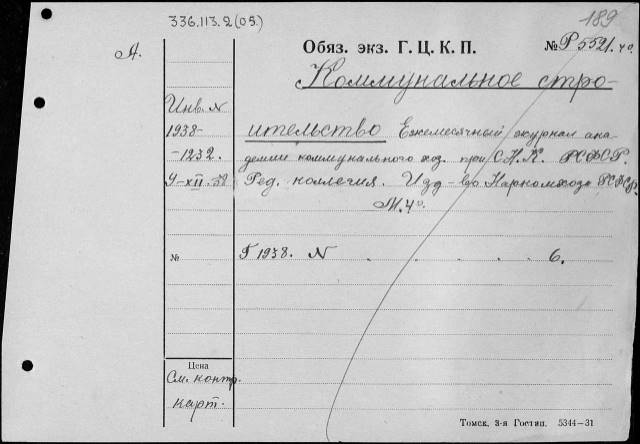 336.113.2(05)
189
А.
Обяз. экз. Г. Ц. К. П.
№ Р 5521. 4°
Коммунальное стро-
Инв. N
1938-
ительство Ежемесячный журнал ака-
-1232.
демии коммунального хоз. при С.Н.К. РСФСР.
9-XII-38
Ред. коллегия. Изд-во Наркомхоза РСФСР.
М. 4°.
№
Г 1938. N . . . . . 6.
Цена
См. контр.
карт.
Томск, 3-я Гостип. 5344—31